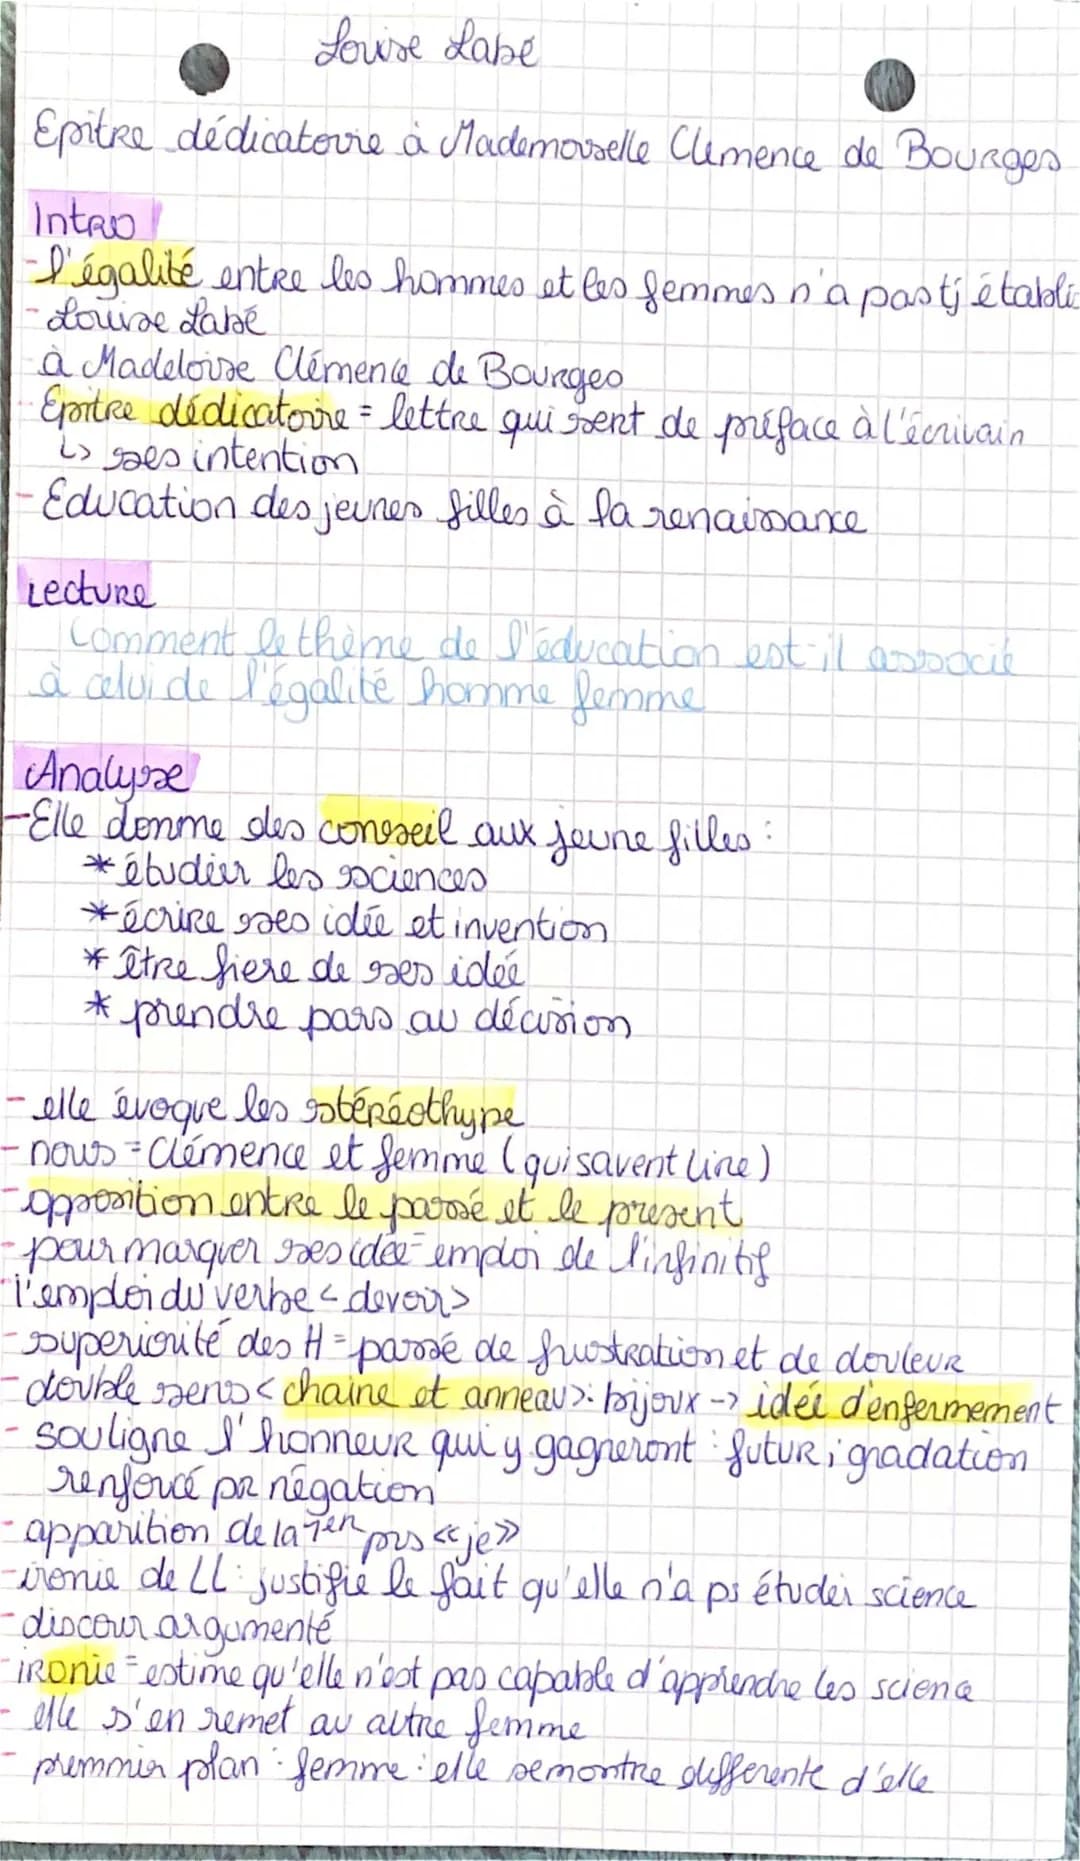 Louise Labé
Epitre dédicatoire à Mademoiselle Clemence de Bourges
Intro
- l'égalité entre les hommes et les femmes n'a pas tj établie
- Louise Labé
à Madeloise Clémence de Bourges
Epitre dédicatoire = lettre qui sert de préface à l'écrivain
↳ ses intention
- Education des jeunes filles à la renaissance
Lecture
Comment le thème de l'éducation est-il associé
à celui de l'égalité homme femme
Analyse
- Elle donne des conseil aux jeune filles :
* étudier les sciences
* écrire ses idée et invention
* être fiere de ses idée
* prendre pars au décision
- elle évoque les stéréothype
- nous = Clémence et femme (qui savent lire)
- opposition entre le passé et le present
- pour marquer ses idée = emploi de l'infinitif
- l'emploi du verbe < devoir >
- superiorité des H = passé de frustration et de douleur
- double sens < chaine et anneau > : bijoux -> idée d'enfermement
- souligne l'honneur qui y gagneront : futur ; gradation
renforcé pr négation
- apparition de la 1er prs «je»
- ironie de LL : justifie le fait qu'elle n'a ps étudei science
- discour argumenté
- ironie = estime qu'elle n'est pas capable d'apprendre les science
- elle s'en remet au autre femme
- premmier plan : femme : elle se montre differente d'elle